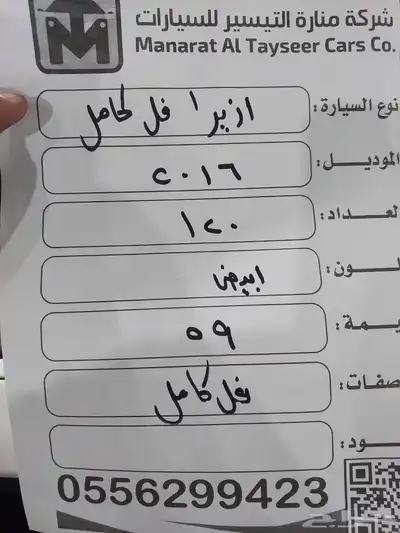 شركة منارة التيسير للسيارات
Manarat Al Tayseer Cars Co.
نوع السيارة: ازيرا فل كامل
الموديل: ٢٠١٦
لعداد: ١٢٠
لون: ابيض
يمة: ٥٩
صفات: فل كامل
ود:
0556299423